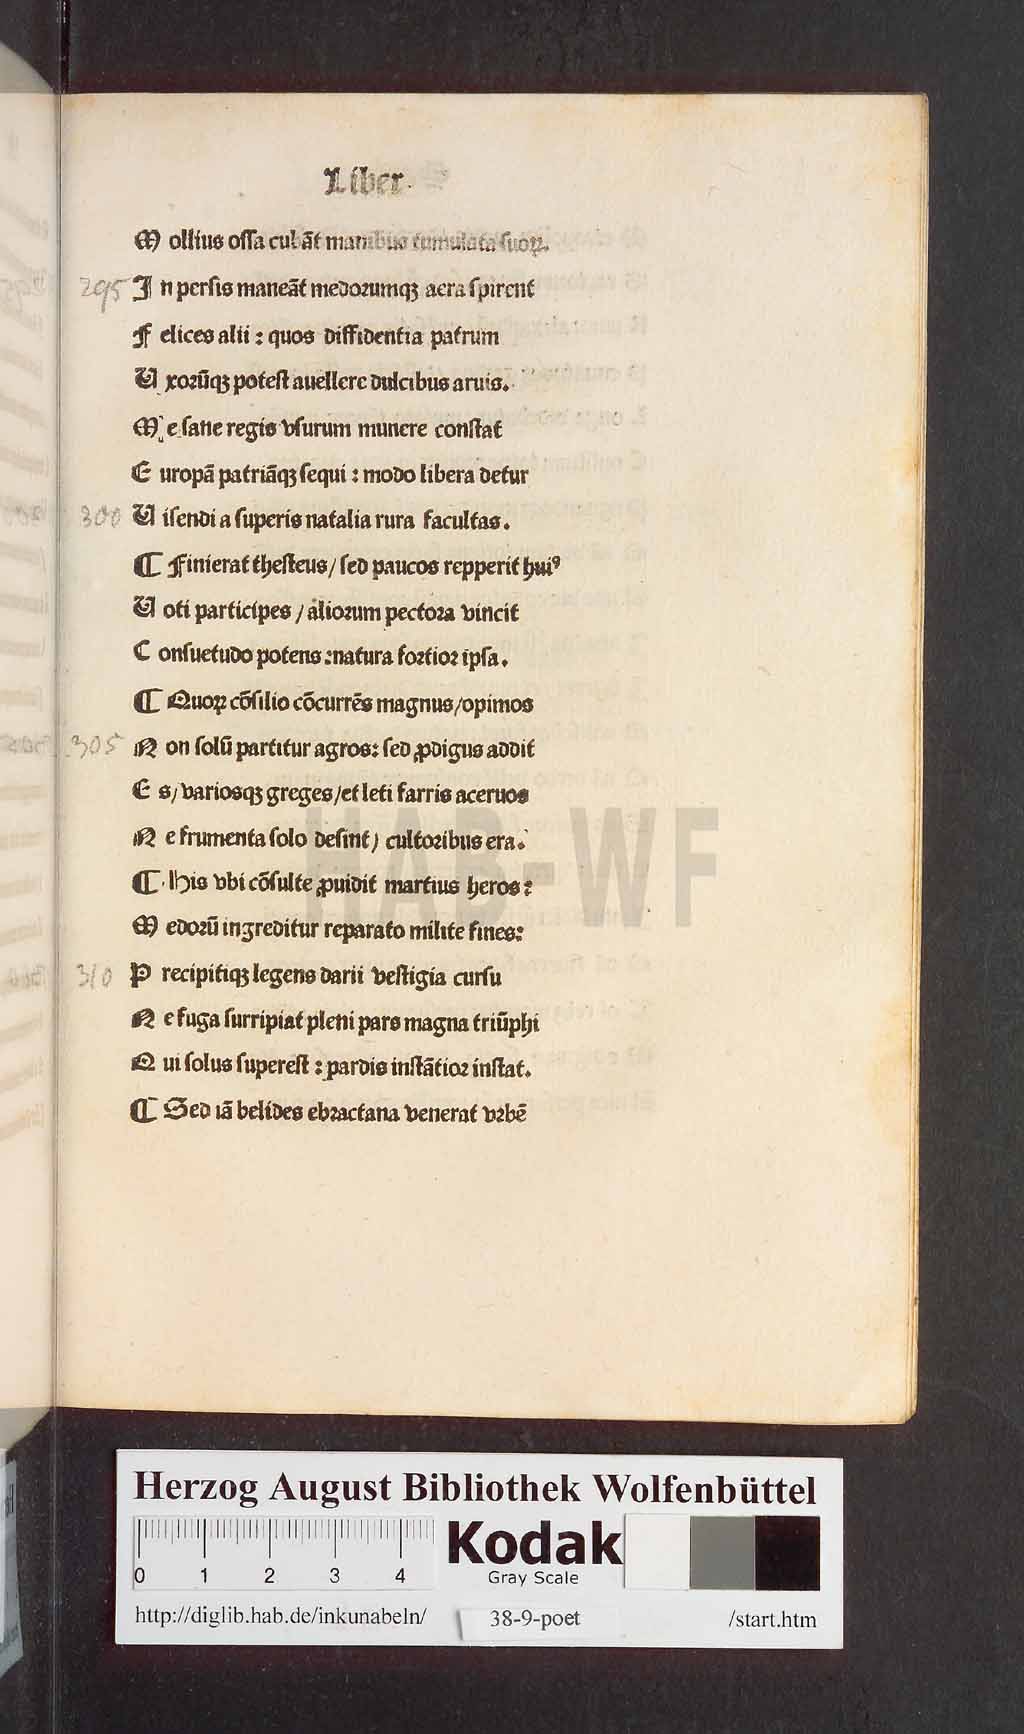 Liber.
M ollius ossa cubāt manibus tumulata suoꝝ.
295 I n persis maneāt medorumqꝫ aera spirent
F elices alii : quos diffidentia patrum
U xorūqꝫ potest auellere dulcibus aruis.
M e sane regis vsurum munere constat
E uropā patriāqꝫ sequi : modo libera detur
300 U isendi a superis natalia rura facultas.
¶ Finierat thesteus / sed paucos repperit huiꝰ
U oti participes / aliorum pectora vincit
C onsuetudo potens : natura fortior ipsa.
¶ Quoꝝ cōsilio cōcurrēs magnus / opimos
305 N on solū partitur agros : sed ꝓdigus addit
E s / variosqꝫ greges / et leti farris aceruos
N e frumenta solo desint / cultoribus era.
¶ His vbi cōsulte ꝓuidit martius heros :
M edorū ingreditur reparato milite fines :
310 P recipitiqꝫ legens darii vestigia cursu
N e fuga surripiat pleni pars magna triūphi
Q ui solus superest : pardis instātior instat.
¶ Sed iā belides ebractana venerat vrbē
HAB-WF
Herzog August Bibliothek Wolfenbüttel
0 1 2 3 4
Kodak
Gray Scale
http://diglib.hab.de/inkunabeln/ 38-9-poet /start.htm